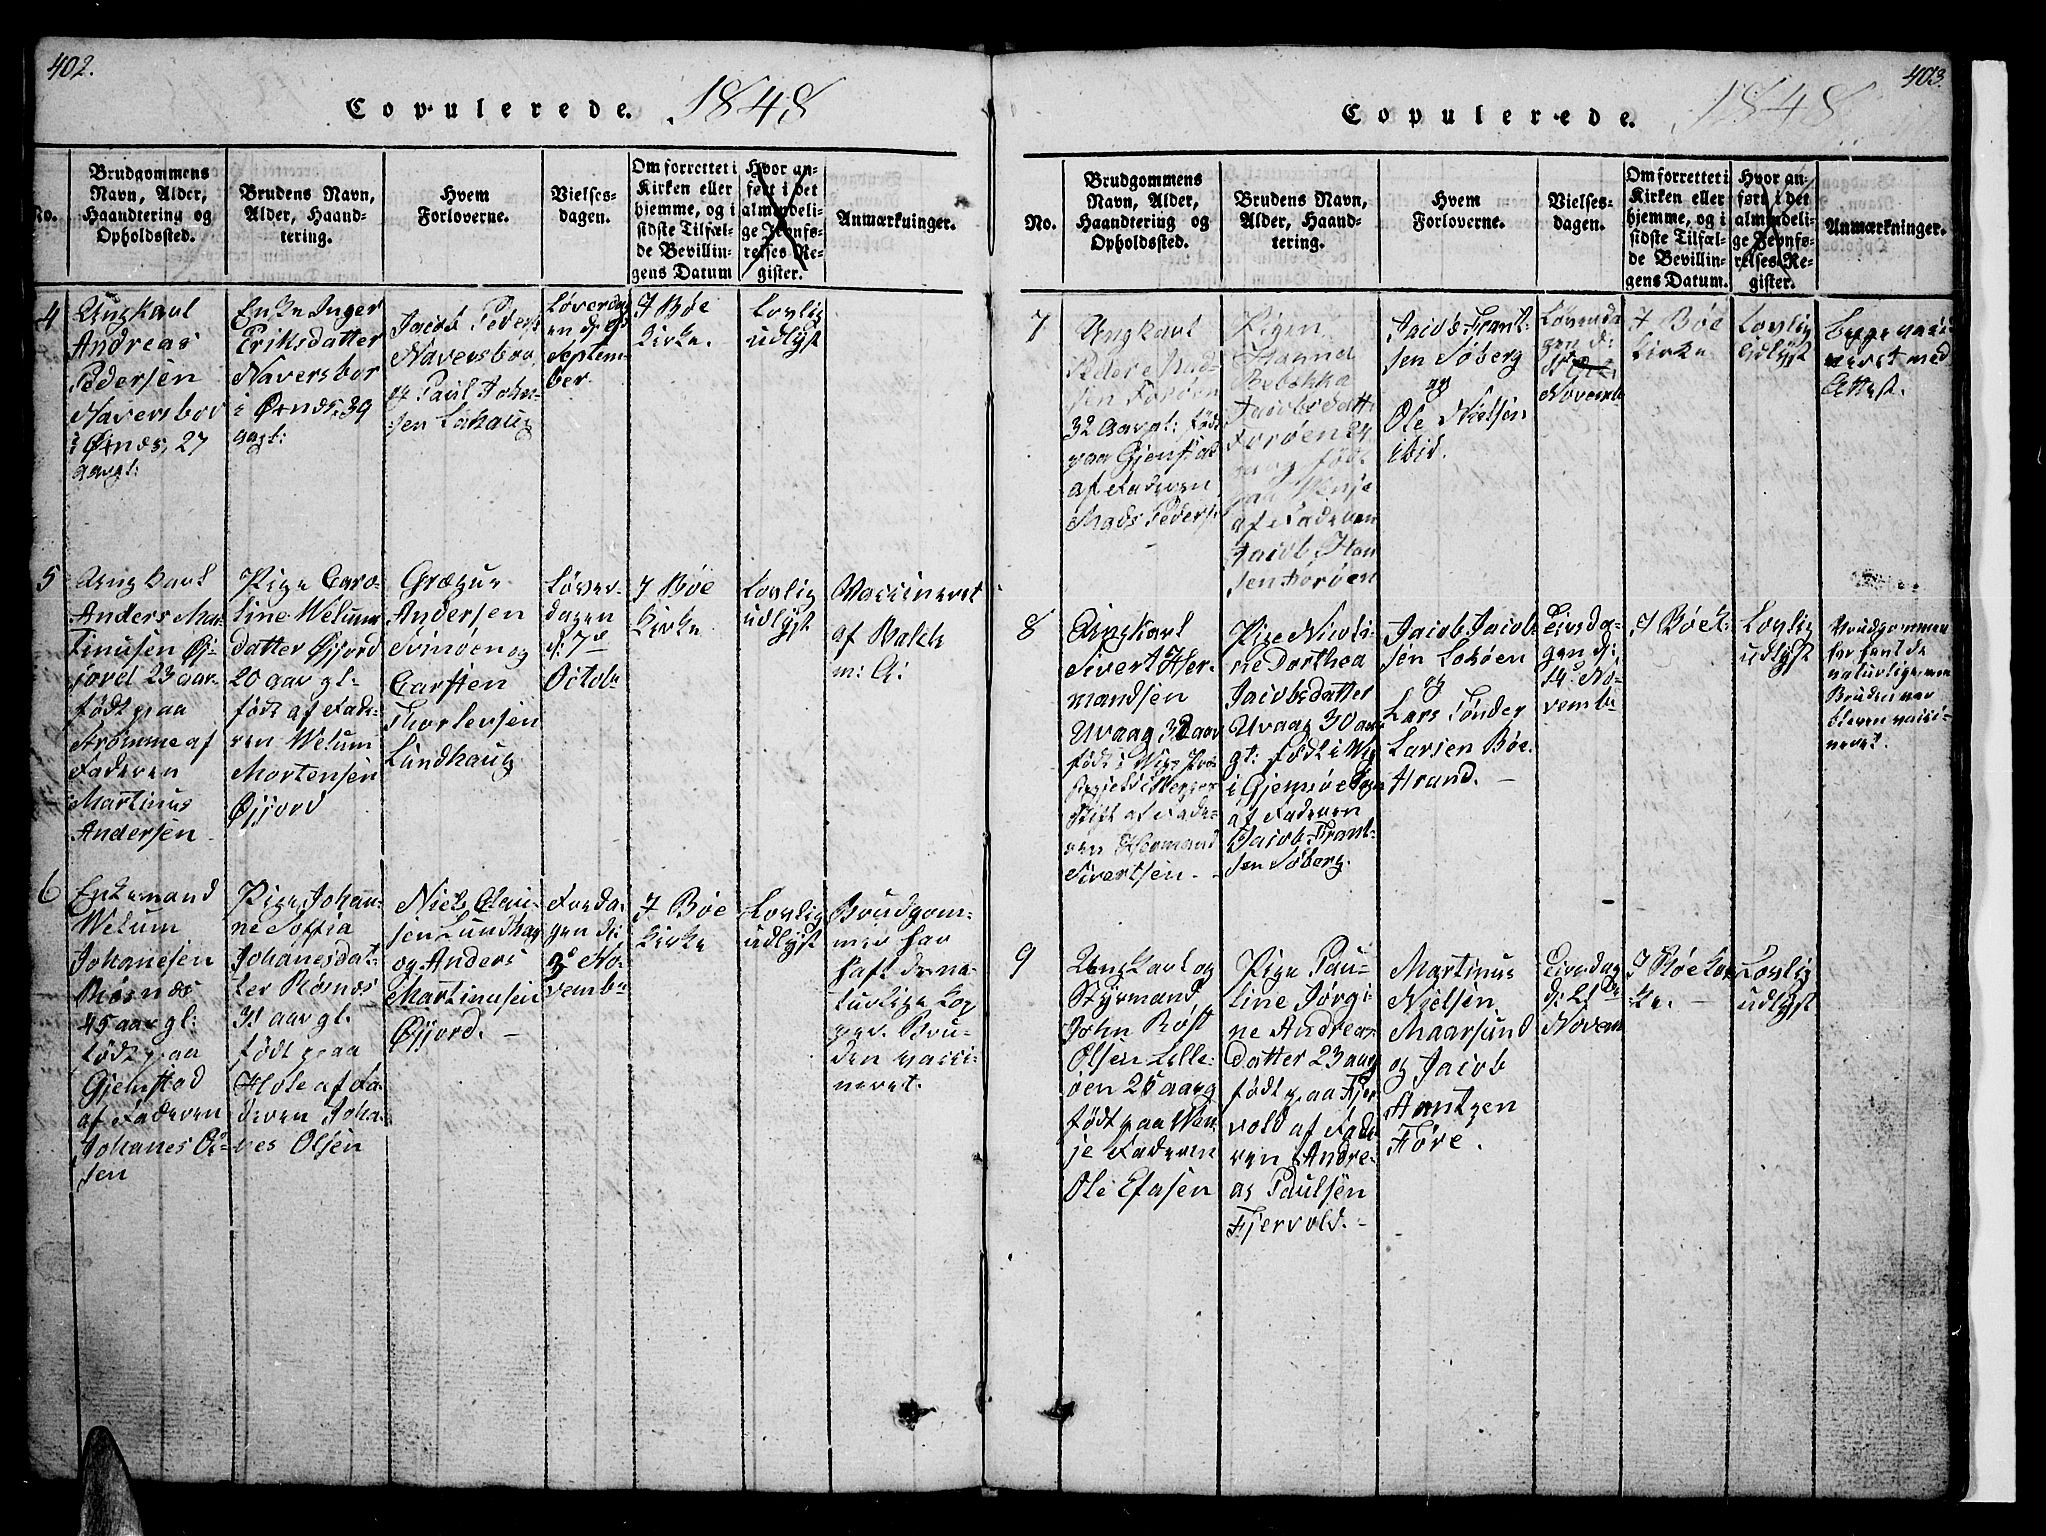 402.
Copulerede. 1848
No.
Brudgommens
Navn, Alder,
Haandtering og
Opholdssted.
Brudens Navn,
Alder, Haand-
tering.
Hvem
Forloverne.
Vielses-
dagen.
Om forrettet i
Kirken eller
hjemme, og i
sidste Tilfæl-
de Bevillin-
gens Datum
Hvor an-
ført i det
almindeli-
ge Jevnfø-
relses Re-
gister.
Anmærkninger.
4
Ungkarl
Andreas
Pedersen
Naversbor
i Ørnæs, 27
aargl:
Enke Inger
Eriksdatter
Naversbor
i Ørnæs, 39
aargl:
Jacob Peders:
Naversbor
Paul Johan-
sen
Løverdag
Septem-
ber.
I Bøe
Kirke.
Lovlig
udlyst
5
Ung Karl
Anders Mar-
tinusen Øj-
jord 23 aar
født paa
Strømme af
Faderen
Martinus
Andersen
Pige Caro-
line Welum
datter Øjjord
20 aar gl:
født af Fade-
ren Welum
Mortensen
Øjjord
Andersen
og
Carsten
Thorlevsen
Lundhaug
Løver-
dagen
d: 7de
Octobr
I Bøe
Kirke
Lovlig
udlyst
Vaccineret
af Balch
m: A:
6
Enkemand
Welum
Johanesen
Røsnæs
45 aar gl:
født paa
Gjenstad
af Faderen
Johanes Ol-
sen
Pige Johan-
ne Soffia
Johanesdat-
ter Røsnæs
31 aar gl.
født paa
Hole af Fa-
deren Joha-
nes Olsen
Niels Clau-
sen Lundhaug
og Anders
Martinusen
Øjjord. –
Fredа-
gen d:
No-
vembr
I Bøe
Kirke
Lovlig
udlyst
Brudgom-
men har
haft de na-
turlige Kop-
per. Bru-
den vacci-
neret.
403.
Copulerede. 1848
No.
Brudgommens
Navn, Alder,
Haandtering og
Opholdssted.
Brudens Navn,
Alder, Haand-
tering.
Hvem
Forloverne.
Vielses-
dagen.
Om forrettet i
Kirken eller
hjemme, og i
sidste Tilfæl-
de Bevillin-
gens Datum.
Hvor an-
ført i det
almindeli-
ge Jevnfø-
relses Re-
gister.
Anmærkninger.
7
Ungkarl
Peder Mad-
sen Forøen
32 aargl: født
paa Gjenstad
af Faderen
Mads Peders:
Pigen
Hanna
Rebekka
Jacobsdatt:
Forøen 24
aarg født
paa Vinje
af Faderen
Jacob Han
sen Forøen
Jacob Frant-
sen Søberg
og
Ole Nielsen
ibid.
Løverda
gen d:
Novemb
I Bøe
Kirke
Lovlig
udlyst
Begge vacci
neret med
Attest.
8
Ungkarl
Sivert Her-
mandsen
Uvaag 32 aar
født i
af Fade-
ren Hermand
Sivertsen. –
Pige Nicoli-
ne Dorthea
Jacobsdatter
Uvaag 30 aar
gl: født i
i Gjemsøe
af Faderen
Jacob Frant-
sen Søberg.
Jacob Jacob-
sen
og
Lars Tønder
Larsen Bøe-
strand. –
Tirsda-
gen d:
14de No-
vembr
I Bøe K:
Lovlig
udlyst
Brudgommen
har havt de
naturlige men
Bruden var
bleven vacci-
neret.
9
Ungkarl og
Styrmand
John Røst
Olsen Lille-
øen 25 aarg
født paa Vin-
je Faderen
Ole Efasen
Pige Pau-
line Jørgi-
ne Andreas-
datter 23 aarg
født paa Fjer
vold af Fade
ren Andre-
as Paulsen
Fjervold. –
Martinus
Nielsen
Maarsund
og Jacob
Arntzen
Føre.
Tirsdag
d: 21de
Novem
I Bøe Kir
ke. –
Lovlig
udlyst